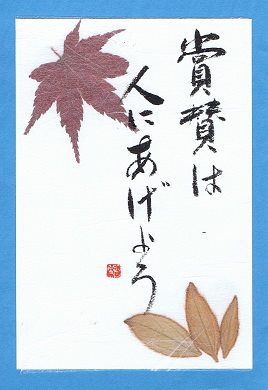 賞賛は
人にあげよう